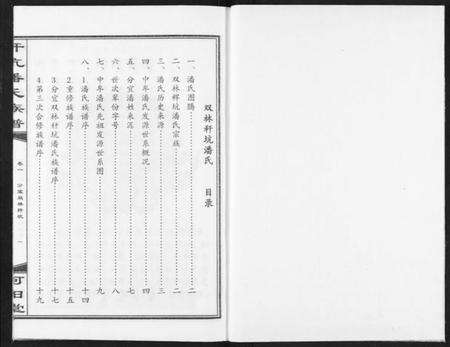 双林秆坑潘氏 目录
一、潘氏图腾……二
二、双林秆坑潘氏宗族……二
三、潘氏历史来源……三
四、中牟潘氏发源世系概况……四
五、分宜潘姓来源……七
六、世次辈份字号……八
七、中牟潘氏先祖发源世系图……九
八、
1.潘氏族谱序……十四
2.重修族谱序……十五
3.分宜双林秆坑潘氏族谱序……十七
4.第三次合修族谱序……十九
秆坑潘氏族谱
卷一
分宜双林秆坑